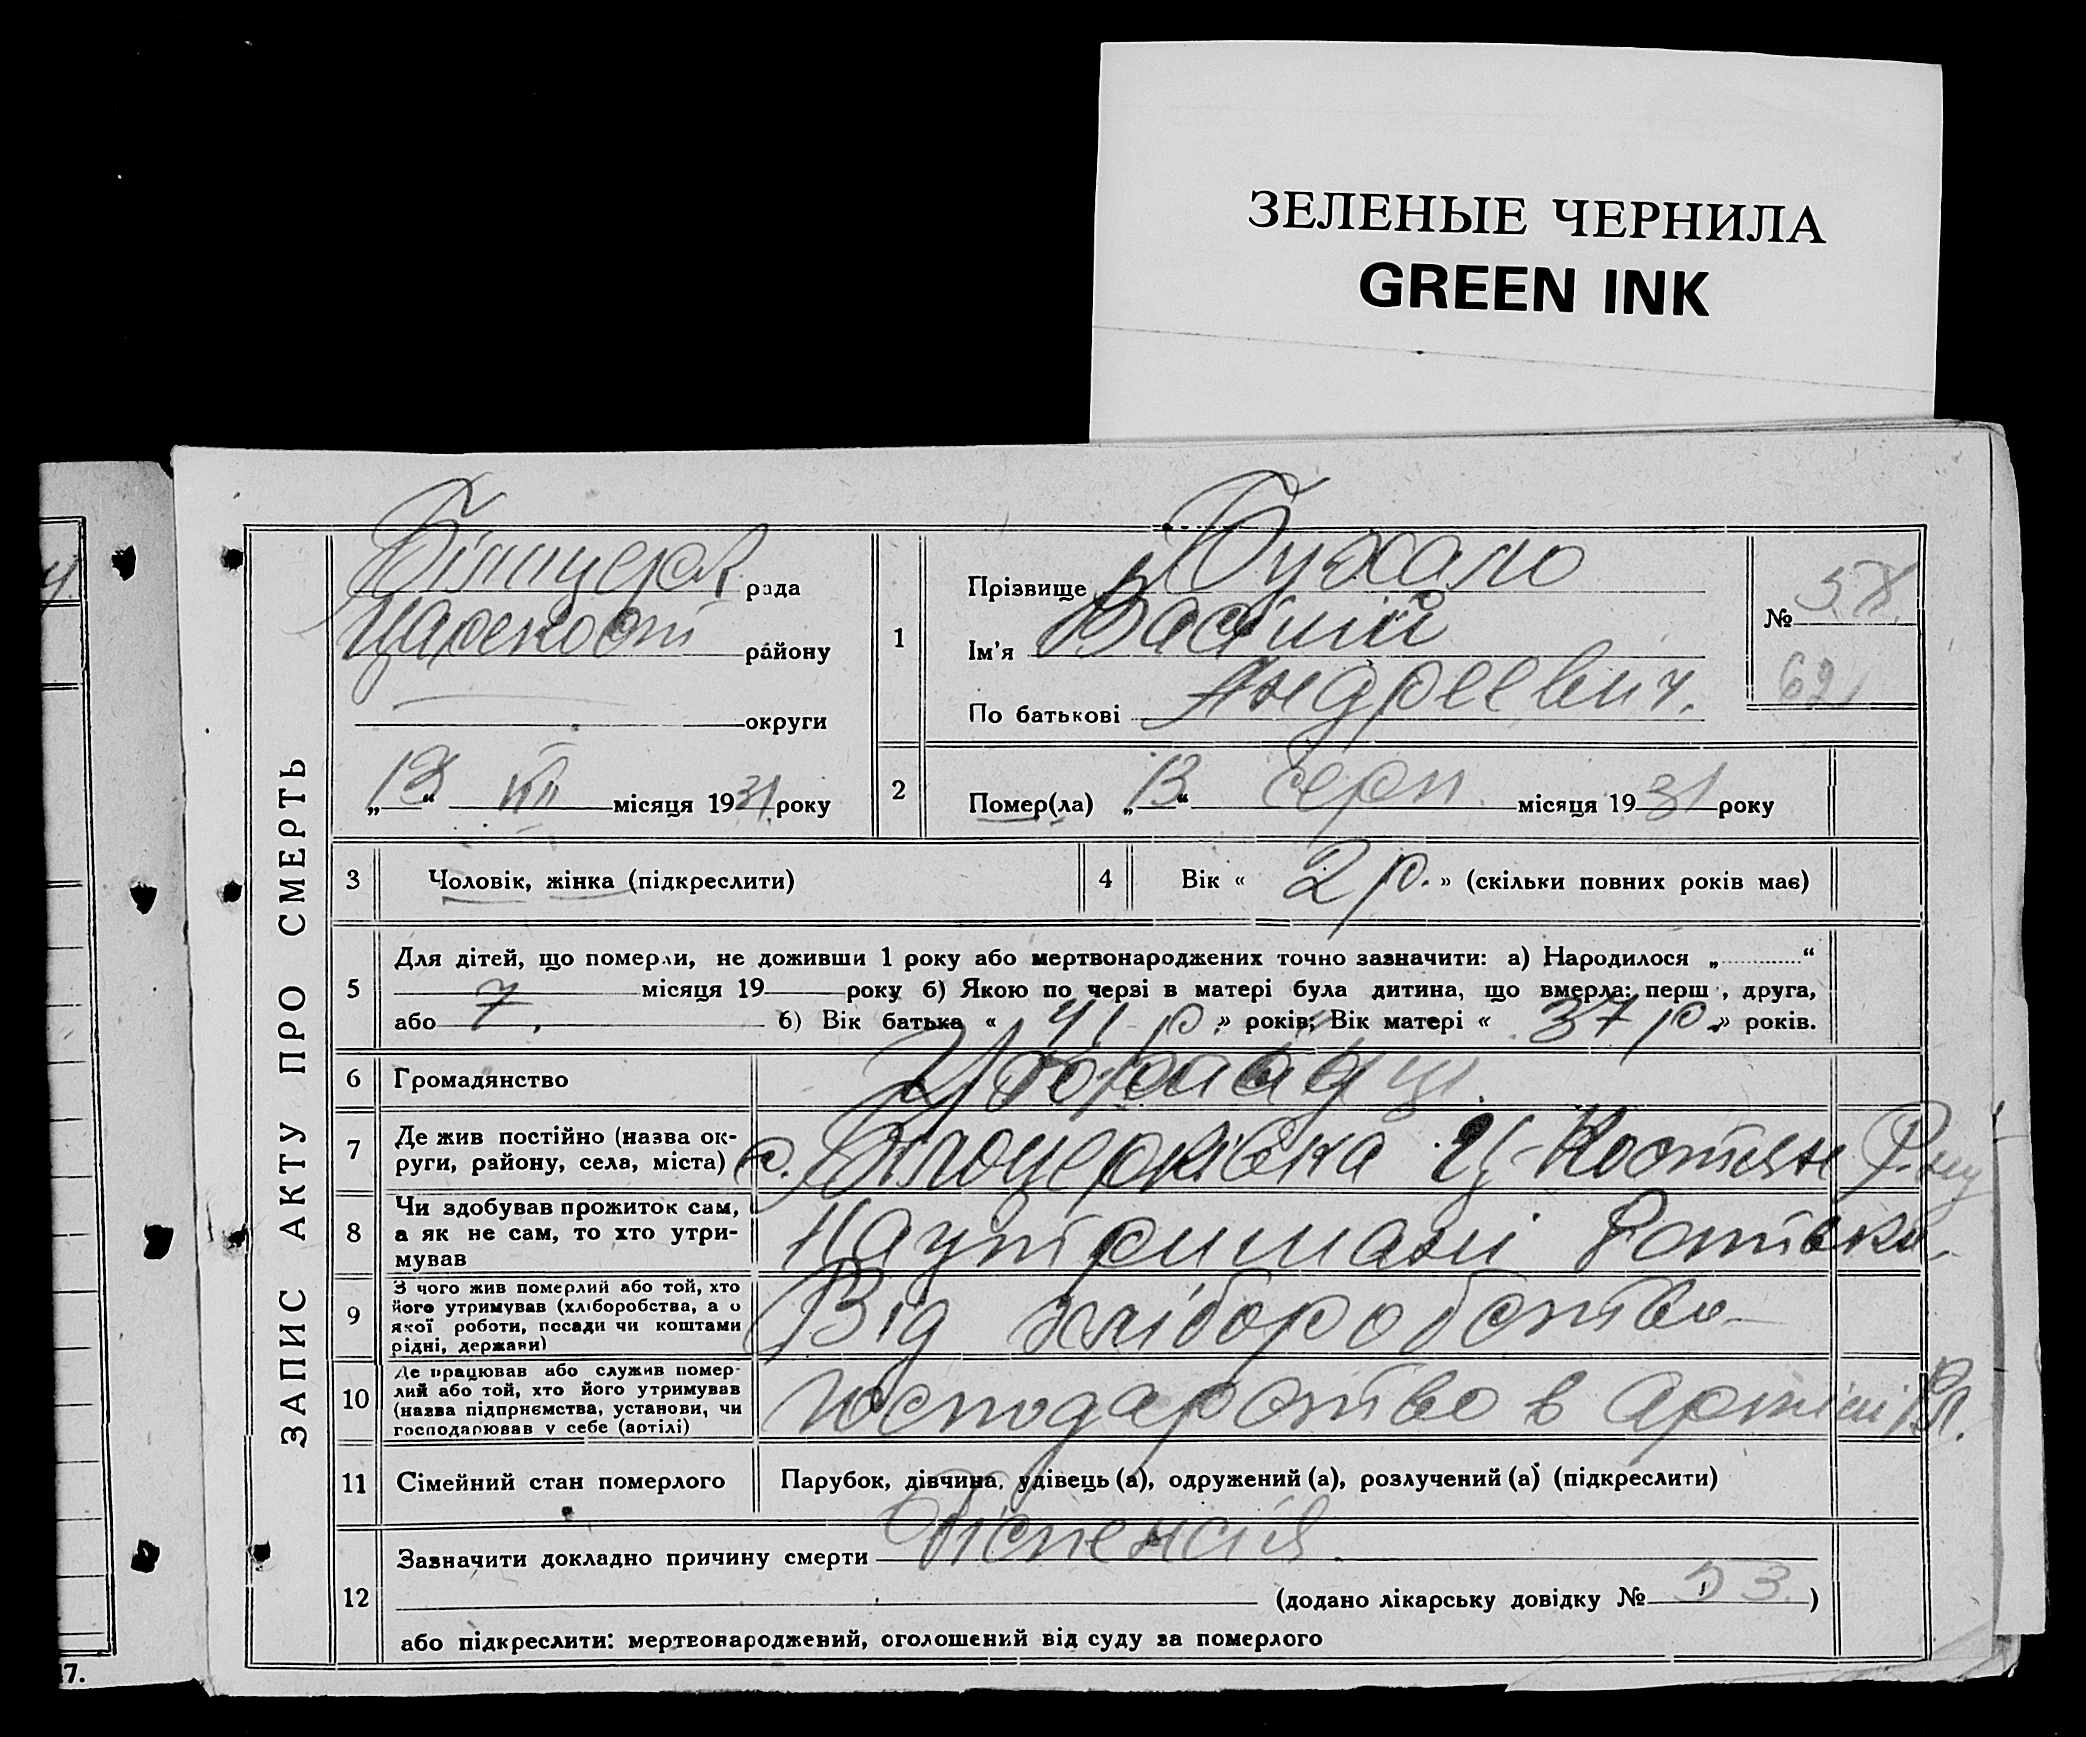 ЗЕЛЕНЫЕ ЧЕРНИЛА
GREEN INK
ЗАПИС АКТУ ПРО СМЕРТЬ
Білоцерк рада
району
округи
„13“ VIII місяця 1931 року
1
Прізвище Бухало
Ім'я Василій
По батькові Андреевич.
№ 58
62
2
Помер(ла) „13“ серп місяця 1931 року
3 Чоловік, жінка (підкреслити)
4 Вік « 2 р. » (скільки повних років має)
5
Для дітей, що померли, не доживши 1 року або мертвонароджених точно зазначити: а) Народилося „ “
місяця 19 року б) Якою по черзі в матері була дитина, що вмерла: перш , друга,
або 7 б) Вік батька « 41 р. » років; Вік матері « 37 р. » років.
6 Громадянство
7 Де жив постійно (назва ок-
руги, району, села, міста) с. Білоцерківка Ч-Костян Р-ну
8 Чи здобував прожиток сам,
а як не сам, то хто утри-
мував На утримані батька
9 З чого жив померлий або той, хто
його утримував (хліборобства, а о
якої роботи, посади чи коштами
рідні, держави) Від хліборобства
10 Де працював або служив помер-
лий або той, хто його утримував
(назва підприємства, установи, чи
господарював у себе (артілі) господарство в артілі
11 Сімейний стан померлого Парубок, дівчина, удівець (а), одружений (а), розлучений (а) (підкреслити)
12
Зазначити докладно причину смерти Діспенсія
(додано лікарську довідку № 53.)
або підкреслити: мертвонароджений, оголошений від суду за померлого
17.